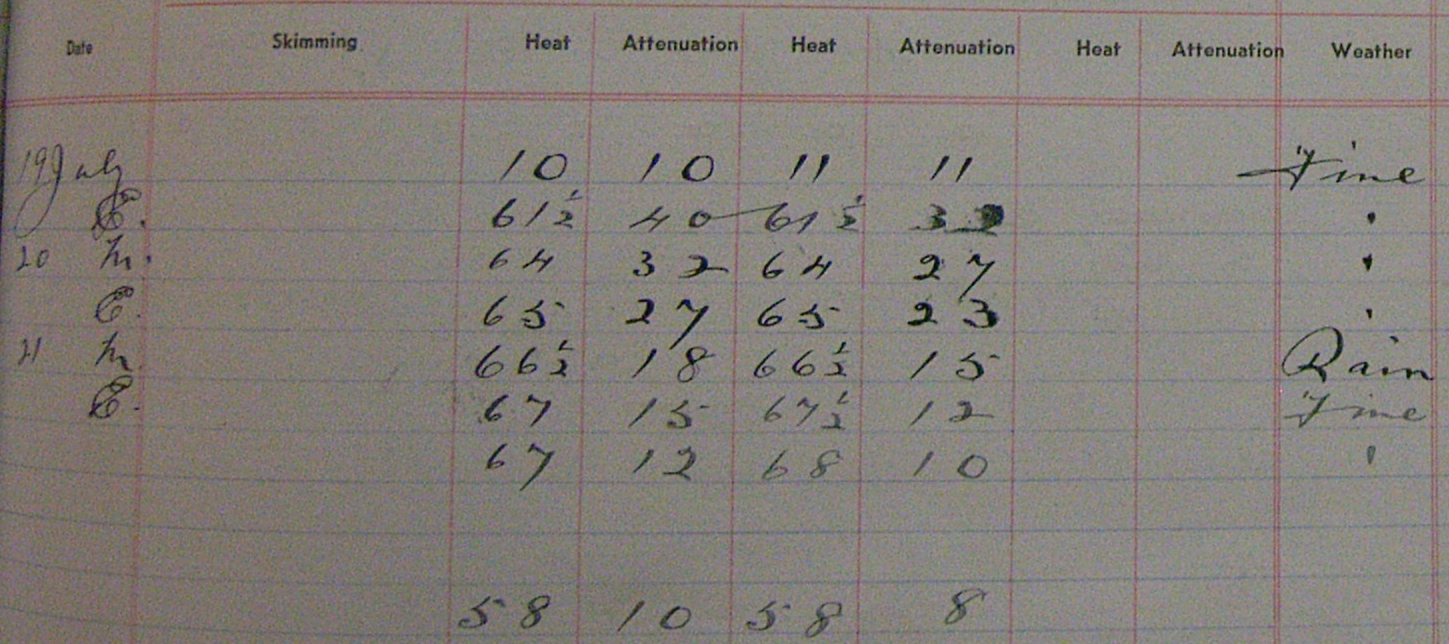 Date Skimming Heat Attenuation Heat Attenuation Heat Attenuation Weather
19 July 10 10 11 11 Fine
E. 61½ 40 61½ 33 "
20 M. 64 32 64 27 "
E. 65 27 65 23 "
21 M. 66½ 18 66½ 15 Rain
E. 67 15 67½ 12 Fine
67 12 68 10 "
58 10 58 8